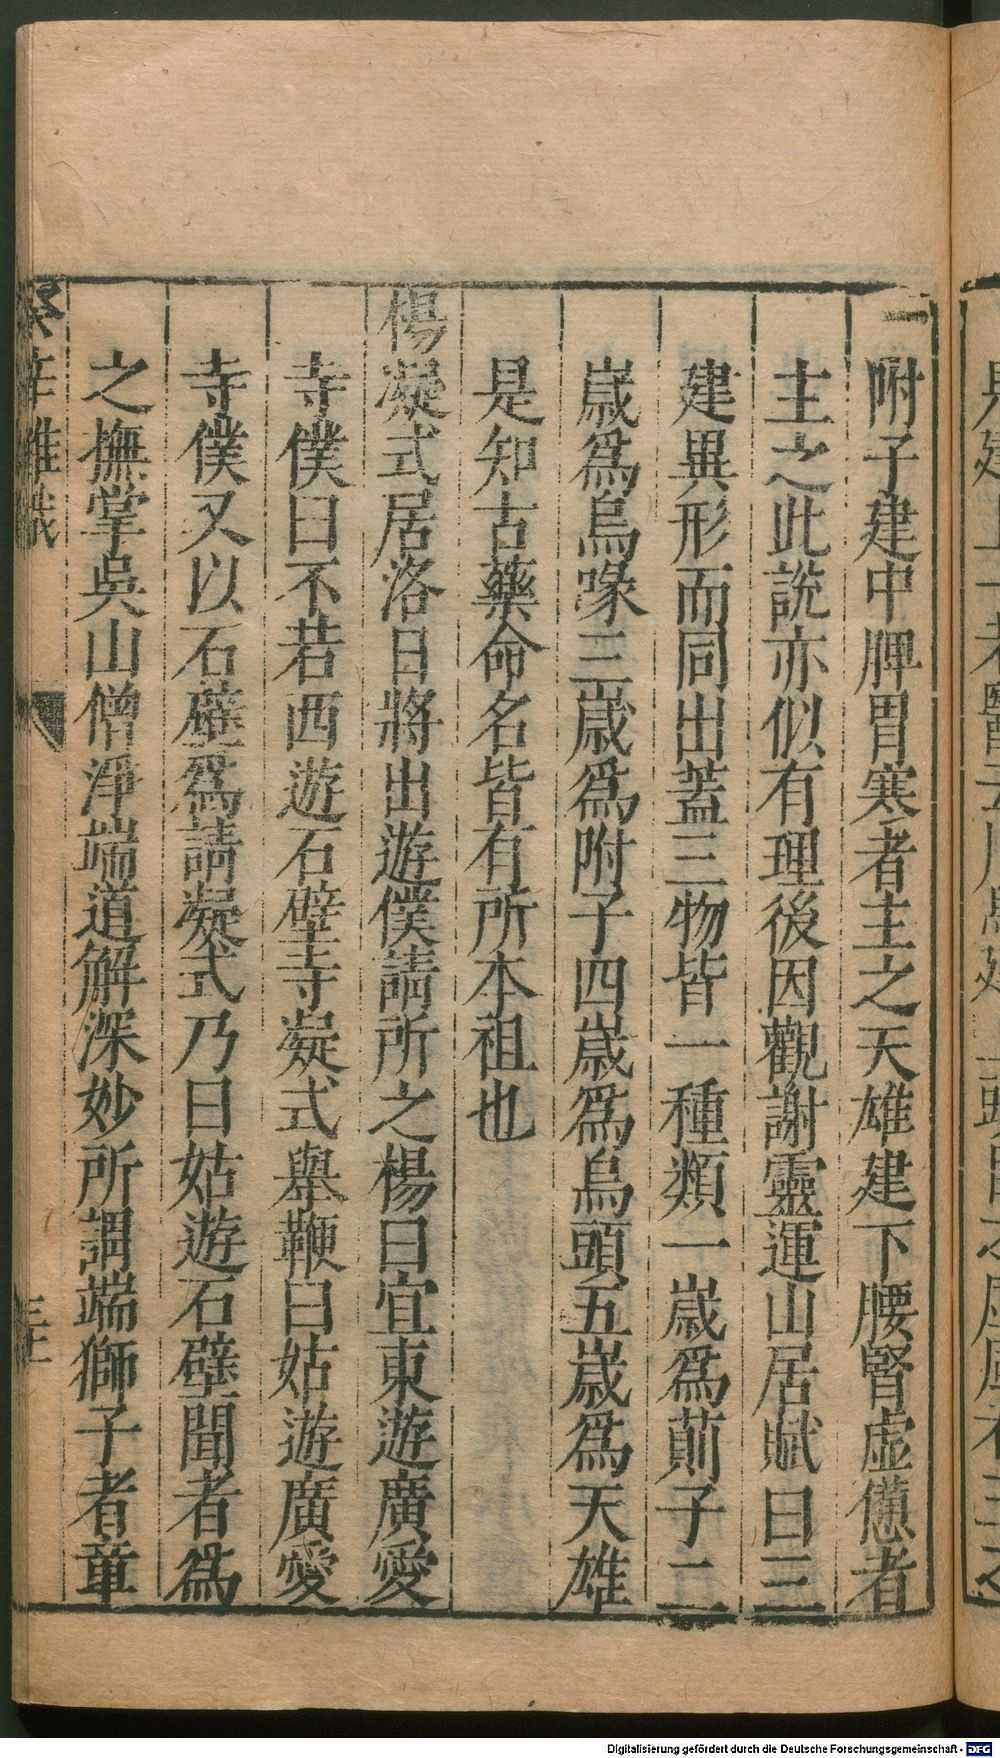 附子建中脾胃寒者主之天雄建下腰腎虛憊者
主之此說亦似有理後因觀謝靈運山居賦曰三
建異形而同出蓋三物皆一種類一歲爲萴子二
歲爲烏喙三歲爲附子四歲爲烏頭五歲爲天雄
是知古藥命名皆有所本祖也
楊凝式居洛日將出遊僕請所之楊曰宜東遊廣愛
寺僕曰不若西遊石壁寺凝式舉鞭曰姑遊廣愛
寺僕又以石壁爲請凝式乃曰姑遊石壁聞者爲
之撫掌吳山僧淨端道解深妙所謂端獅子者章
癸辛雜識
Digitalisierung gefördert durch die Deutsche Forschungsgemeinschaft - DFG